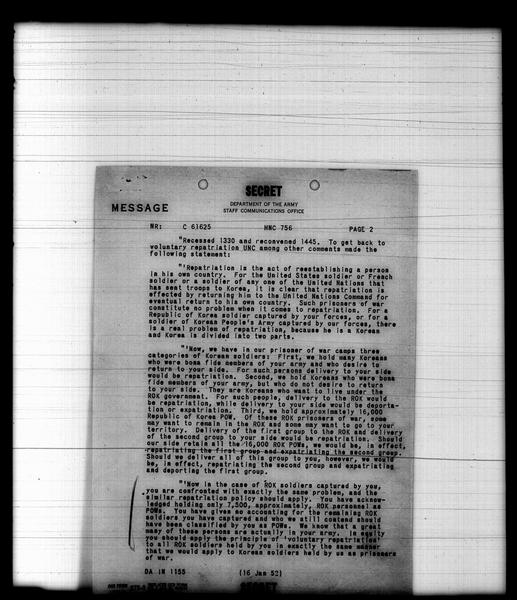 SECRET
DEPARTMENT OF THE ARMY
STAFF COMMUNICATIONS OFFICE
MESSAGE
NR: C 61625 HNC 756 PAGE 2
"Recessed 1330 and reconvened 1445. To get back to
voluntary repatriation UNC among other comments made the
following statement:
"'Repatriation is the act of reestablishing a person
in his own country. For the United States soldier or French
soldier or a soldier of any one of the United Nations that
has sent troops to Korea, it is clear that repatriation is
effected by returning him to the United Nations Command for
eventual return to his own country. Such prisoners of war
constitute no problem when it comes to repatriation. For a
Republic of Korea soldier captured by your forces, or for a
soldier of Korean People's Army captured by our forces, there
is a real problem of repatriation, because he is a Korean
and Korea is divided into two parts.
"'Now, we have in our prisoner of war camps three
categories of Korean soldiers: First, we hold many Koreans
who were bona fide members of your army and who desire to
return to your side. For such persons delivery to your side
would be repatriation. Second, we hold Koreans who were bona
fide members of your army, but who do not desire to return
to your side. They are Koreans who want to live under the
ROK government. For such people, delivery to the ROK would
be repatriation, while delivery to your side would be deporta-
tion or expatriation. Third, we hold approximately 16,000
Republic of Korea POW. Of these ROK prisoners of war, some
may want to remain in the ROK and some may want to go to your
territory. Delivery of the first group to the ROK and delivery
of the second group to your side would be repatriation. Should
our side retain all the 16,000 ROK POWs, we would be, in effect,
repatriating the first group and expatriating the second group.
Should we deliver all of this group to you, however, we would
be, in effect, repatriating the second group and expatriating
and deporting the first group.
"'Now in the case of ROK soldiers captured by you,
you are confronted with exactly the same problem, and the
similar repatriation policy should apply. You have acknow-
ledged holding only 7,500, approximately, ROK personnel as
POWs. You have given us no accounting for the remaining ROK
soldiers you have captured and who we still contend should
have been classified by you as POWs. We know that a great
many of these persons are actually in your army. In equity
you should apply the principle of voluntary repatriation
to all ROK soldiers held by you in exactly the same manner
that we would apply to Korean soldiers held by us as prisoners
of war.
DA IN 1155 (16 Jan 52)
SECRET